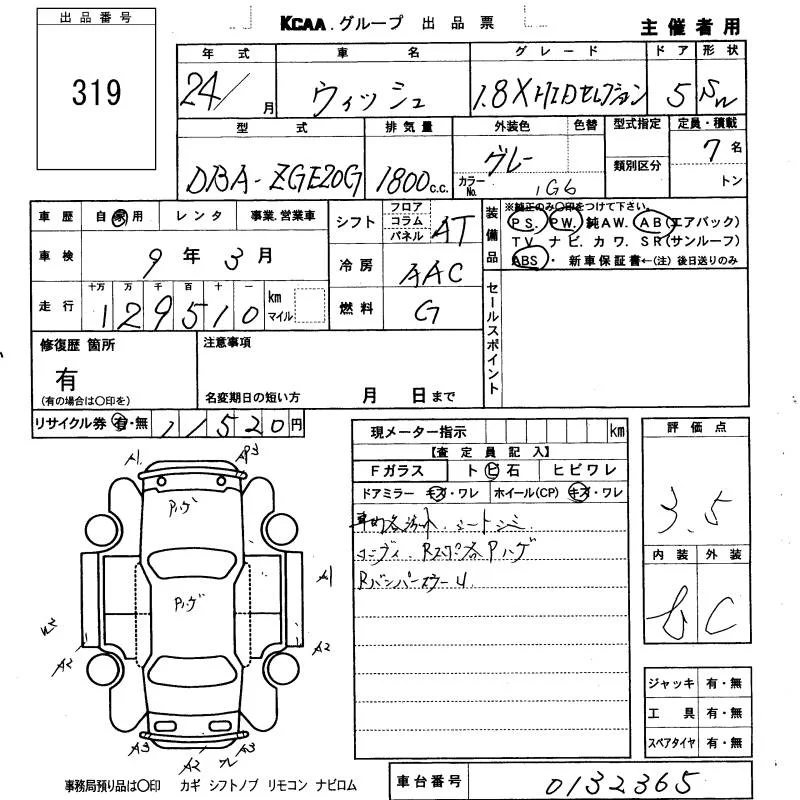 出品番号
319
KCAA.グループ 出品票
主催者用
年式 車名 グレード ドア 形状
24/ 月 ウィッシュ 1.8X HIDセレクション 5 SW
型式 排気量 外装色 色替 型式指定 定員・積載
DBA-ZGE20G 1800c.c. グレー 類別区分 7名
カラーNo. 1G6 トン
車歴 自家用 レンタ 事業.営業車
シフト フロア コラム パネル AT
装備品 ※純正のみ○印をつけて下さい。
PS. PW. 純AW. AB(エアバック)
TV ナビ.カワ.SR(サンルーフ)
ABS・新車保証書←(注)後日送りのみ
車検 9年3月
冷房 AAC
走行 十万 万 千 百 十 一
129510 km マイル
燃料 G
セールスポイント
修復歴 箇所
有
(有の場合は○印を)
注意事項
名変期日の短い方 月 日まで
リサイクル券 有・無 11520円
現メーター指示 km
【査定員記入】
Fガラス ト ビ 石 ヒビワレ
ドアミラー キズ・ワレ ホイール(CP) キズ・ワレ
シートシミ
Pハゲ
評価点
3.5
内装 外装
C
A1
Pハゲ
A1
Pハゲ
A2
A2
A3 A2 A3
ジャッキ 有・無
工具 有・無
スペアタイヤ 有・無
事務局預り品は○印 カギ シフトノブ リモコン ナビロム
車台番号 0132365